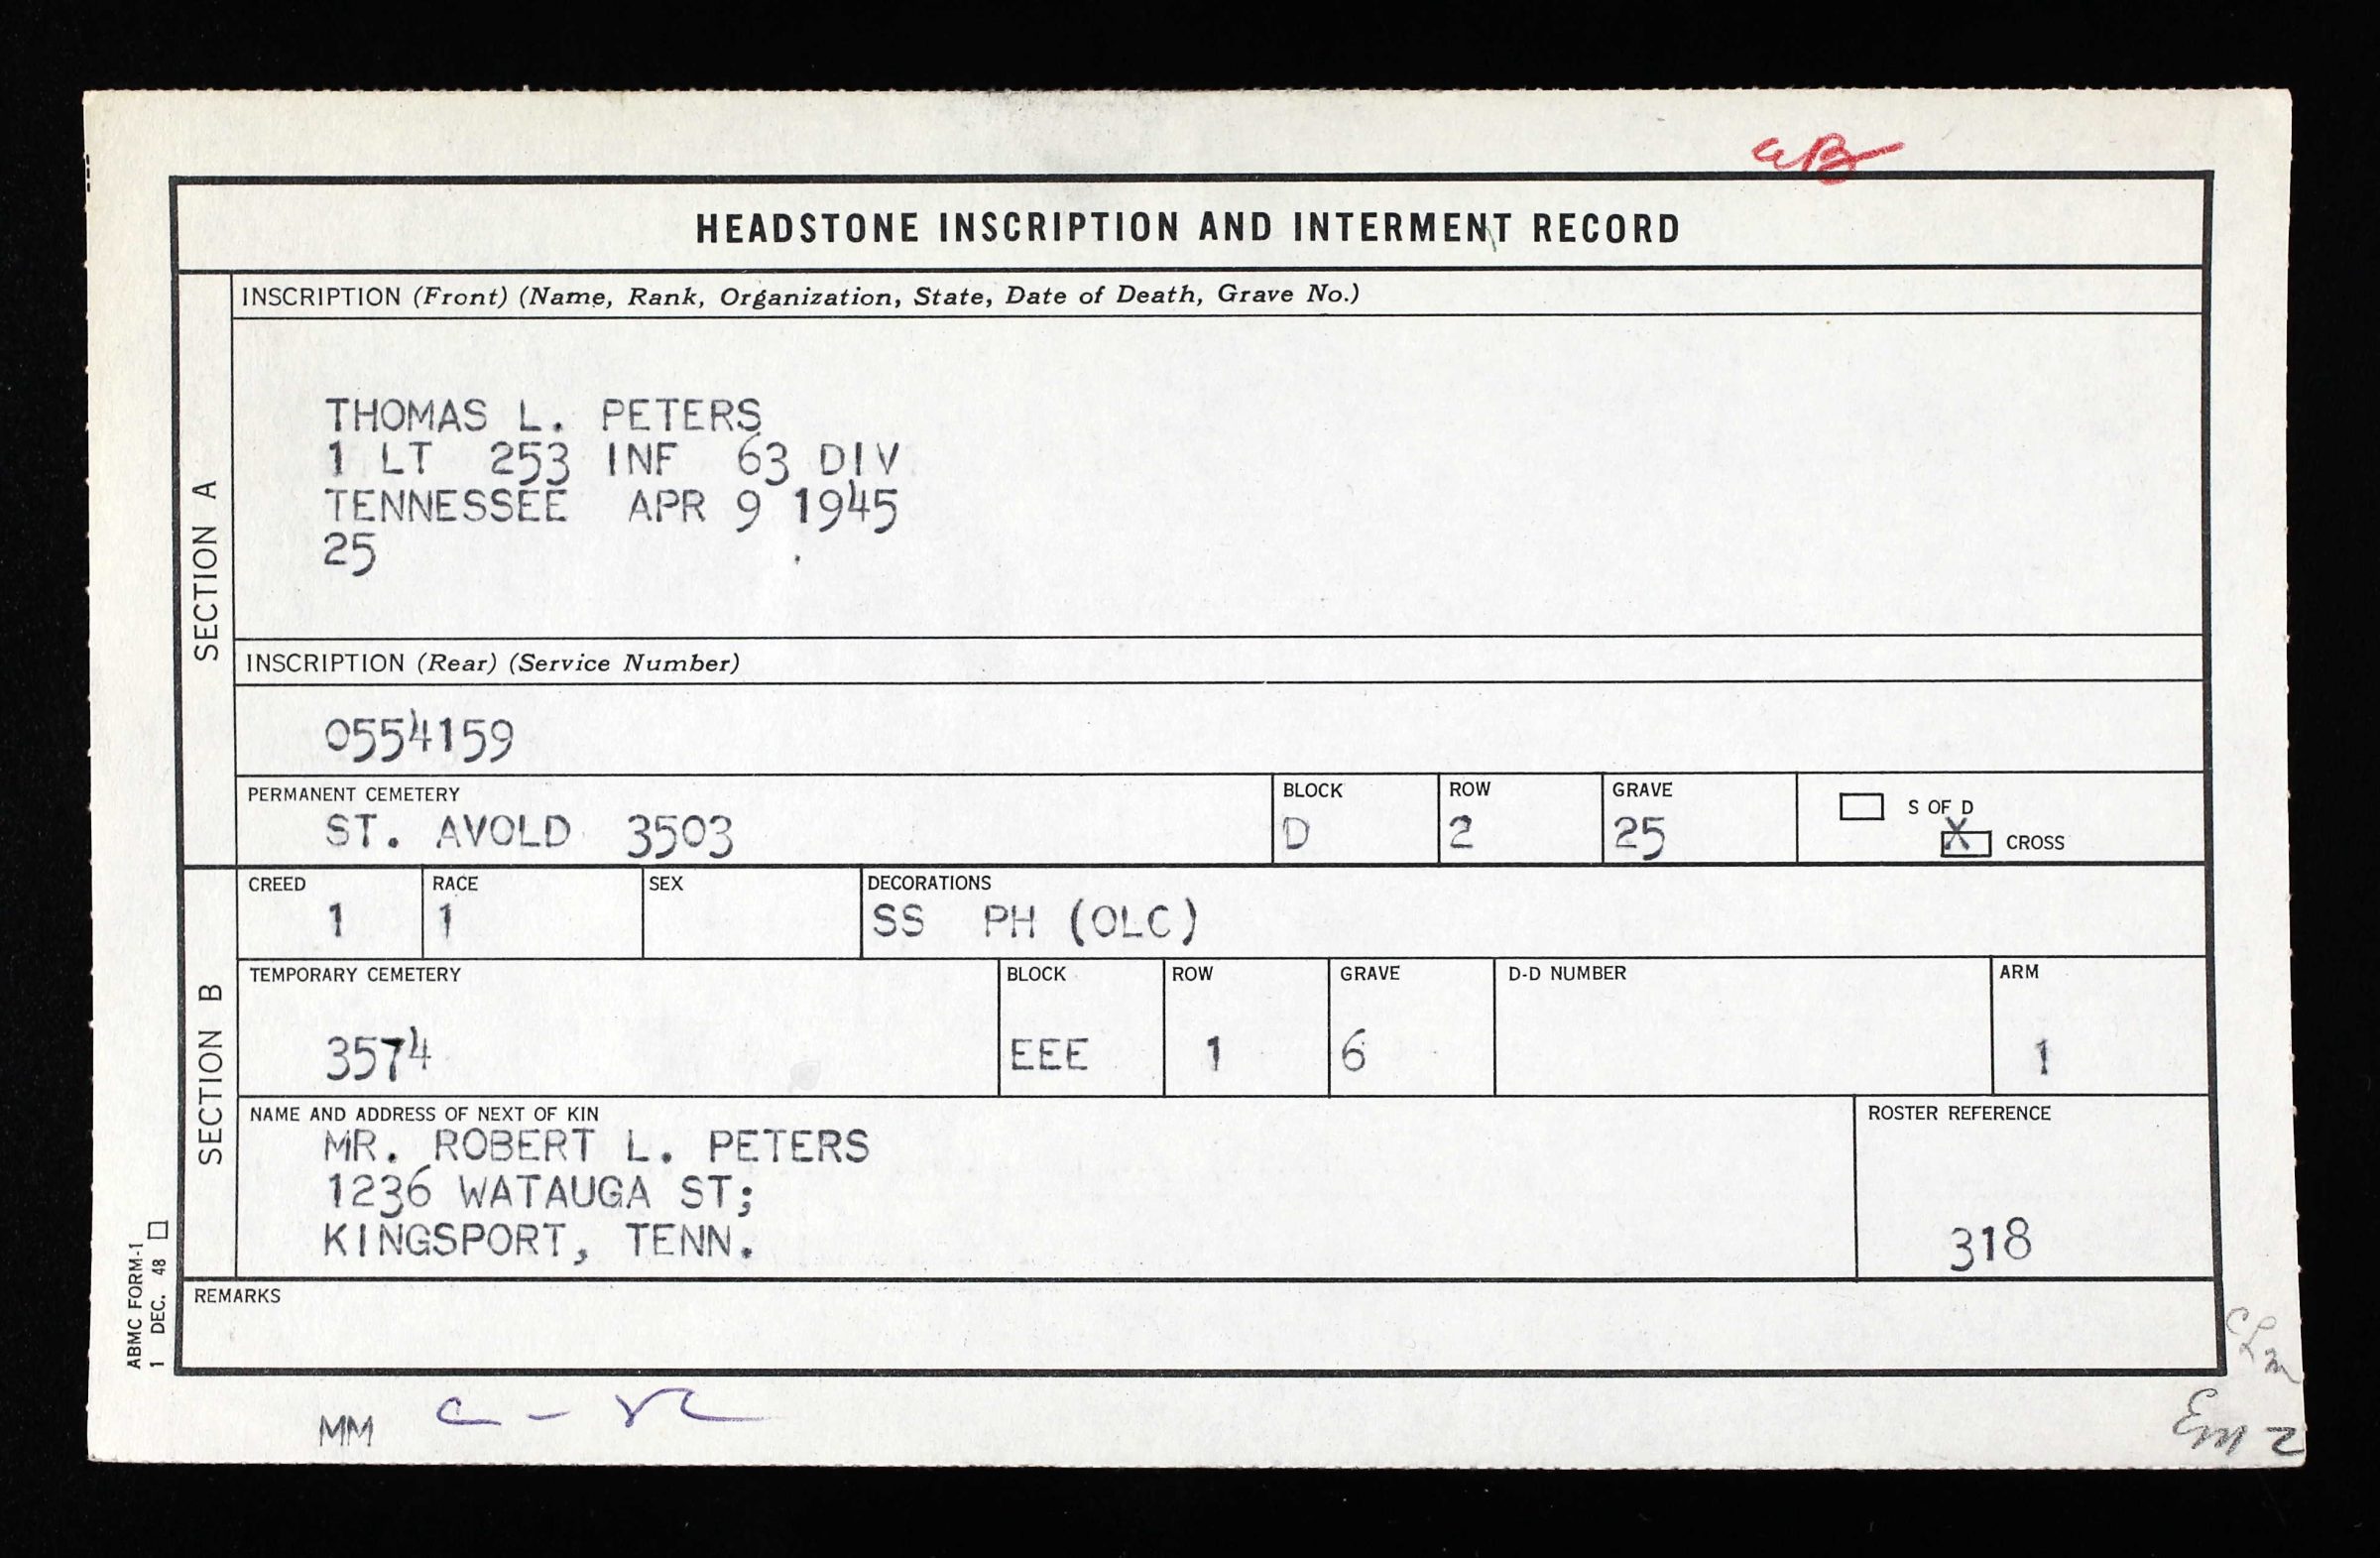 HEADSTONE INSCRIPTION AND INTERMENT RECORD
SECTION A
INSCRIPTION (Front) (Name, Rank, Organization, State, Date of Death, Grave No.)
THOMAS L. PETERS
1 LT 253 INF 63 DIV
TENNESSEE APR 9 1945
25
INSCRIPTION (Rear) (Service Number)
0554159
PERMANENT CEMETERY BLOCK ROW GRAVE
ST. AVOLD 3503 D 2 25
S OF D
X CROSS
SECTION B
CREED RACE SEX DECORATIONS
1 1 SS PH (OLC)
TEMPORARY CEMETERY BLOCK ROW GRAVE D-D NUMBER ARM
3574 EEE 1 6 1
NAME AND ADDRESS OF NEXT OF KIN ROSTER REFERENCE
MR. ROBERT L. PETERS
1236 WATAUGA ST;
KINGSPORT, TENN.
318
REMARKS
ABMC FORM-1
1 DEC. 48
MM